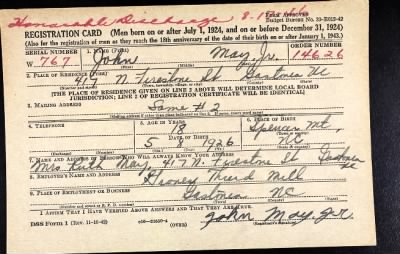 Honorable Discharge 8-1
Form Approved
Budget Bureau No. 33-R012-42
REGISTRATION CARD (Men born on or after July 1, 1924, and on or before December 31, 1924)
(Also for the registration of men as they reach the 18th anniversary of the date of their birth on or after January 1, 1943.)
SERIAL NUMBER 1. NAME (Print) ORDER NUMBER
W 767 John May, Jr. 14626
2. PLACE OF RESIDENCE (Print)
417 N. Firestone St Gastonia NC
[THE PLACE OF RESIDENCE GIVEN ON LINE 2 ABOVE WILL DETERMINE LOCAL BOARD
JURISDICTION; LINE 2 OF REGISTRATION CERTIFICATE WILL BE IDENTICAL]
3. MAILING ADDRESS
Same #2
4. TELEPHONE 5. AGE IN YEARS 6. PLACE OF BIRTH
18 Spencer Mt,
DATE OF BIRTH
5 1926
7. NAME AND ADDRESS OF PERSON WHO WILL ALWAYS KNOW YOUR ADDRESS
Mrs. Ruth May, 417 N. Firestone St Gastonia
8. EMPLOYER'S NAME AND ADDRESS
Mill
9. PLACE OF EMPLOYMENT OR BUSINESS
Gastonia NC
I AFFIRM THAT I HAVE VERIFIED ABOVE ANSWERS AND THAT THEY ARE TRUE.
DSS FORM 1 (Rev. 11-16-42) (OVER) John May Jr.